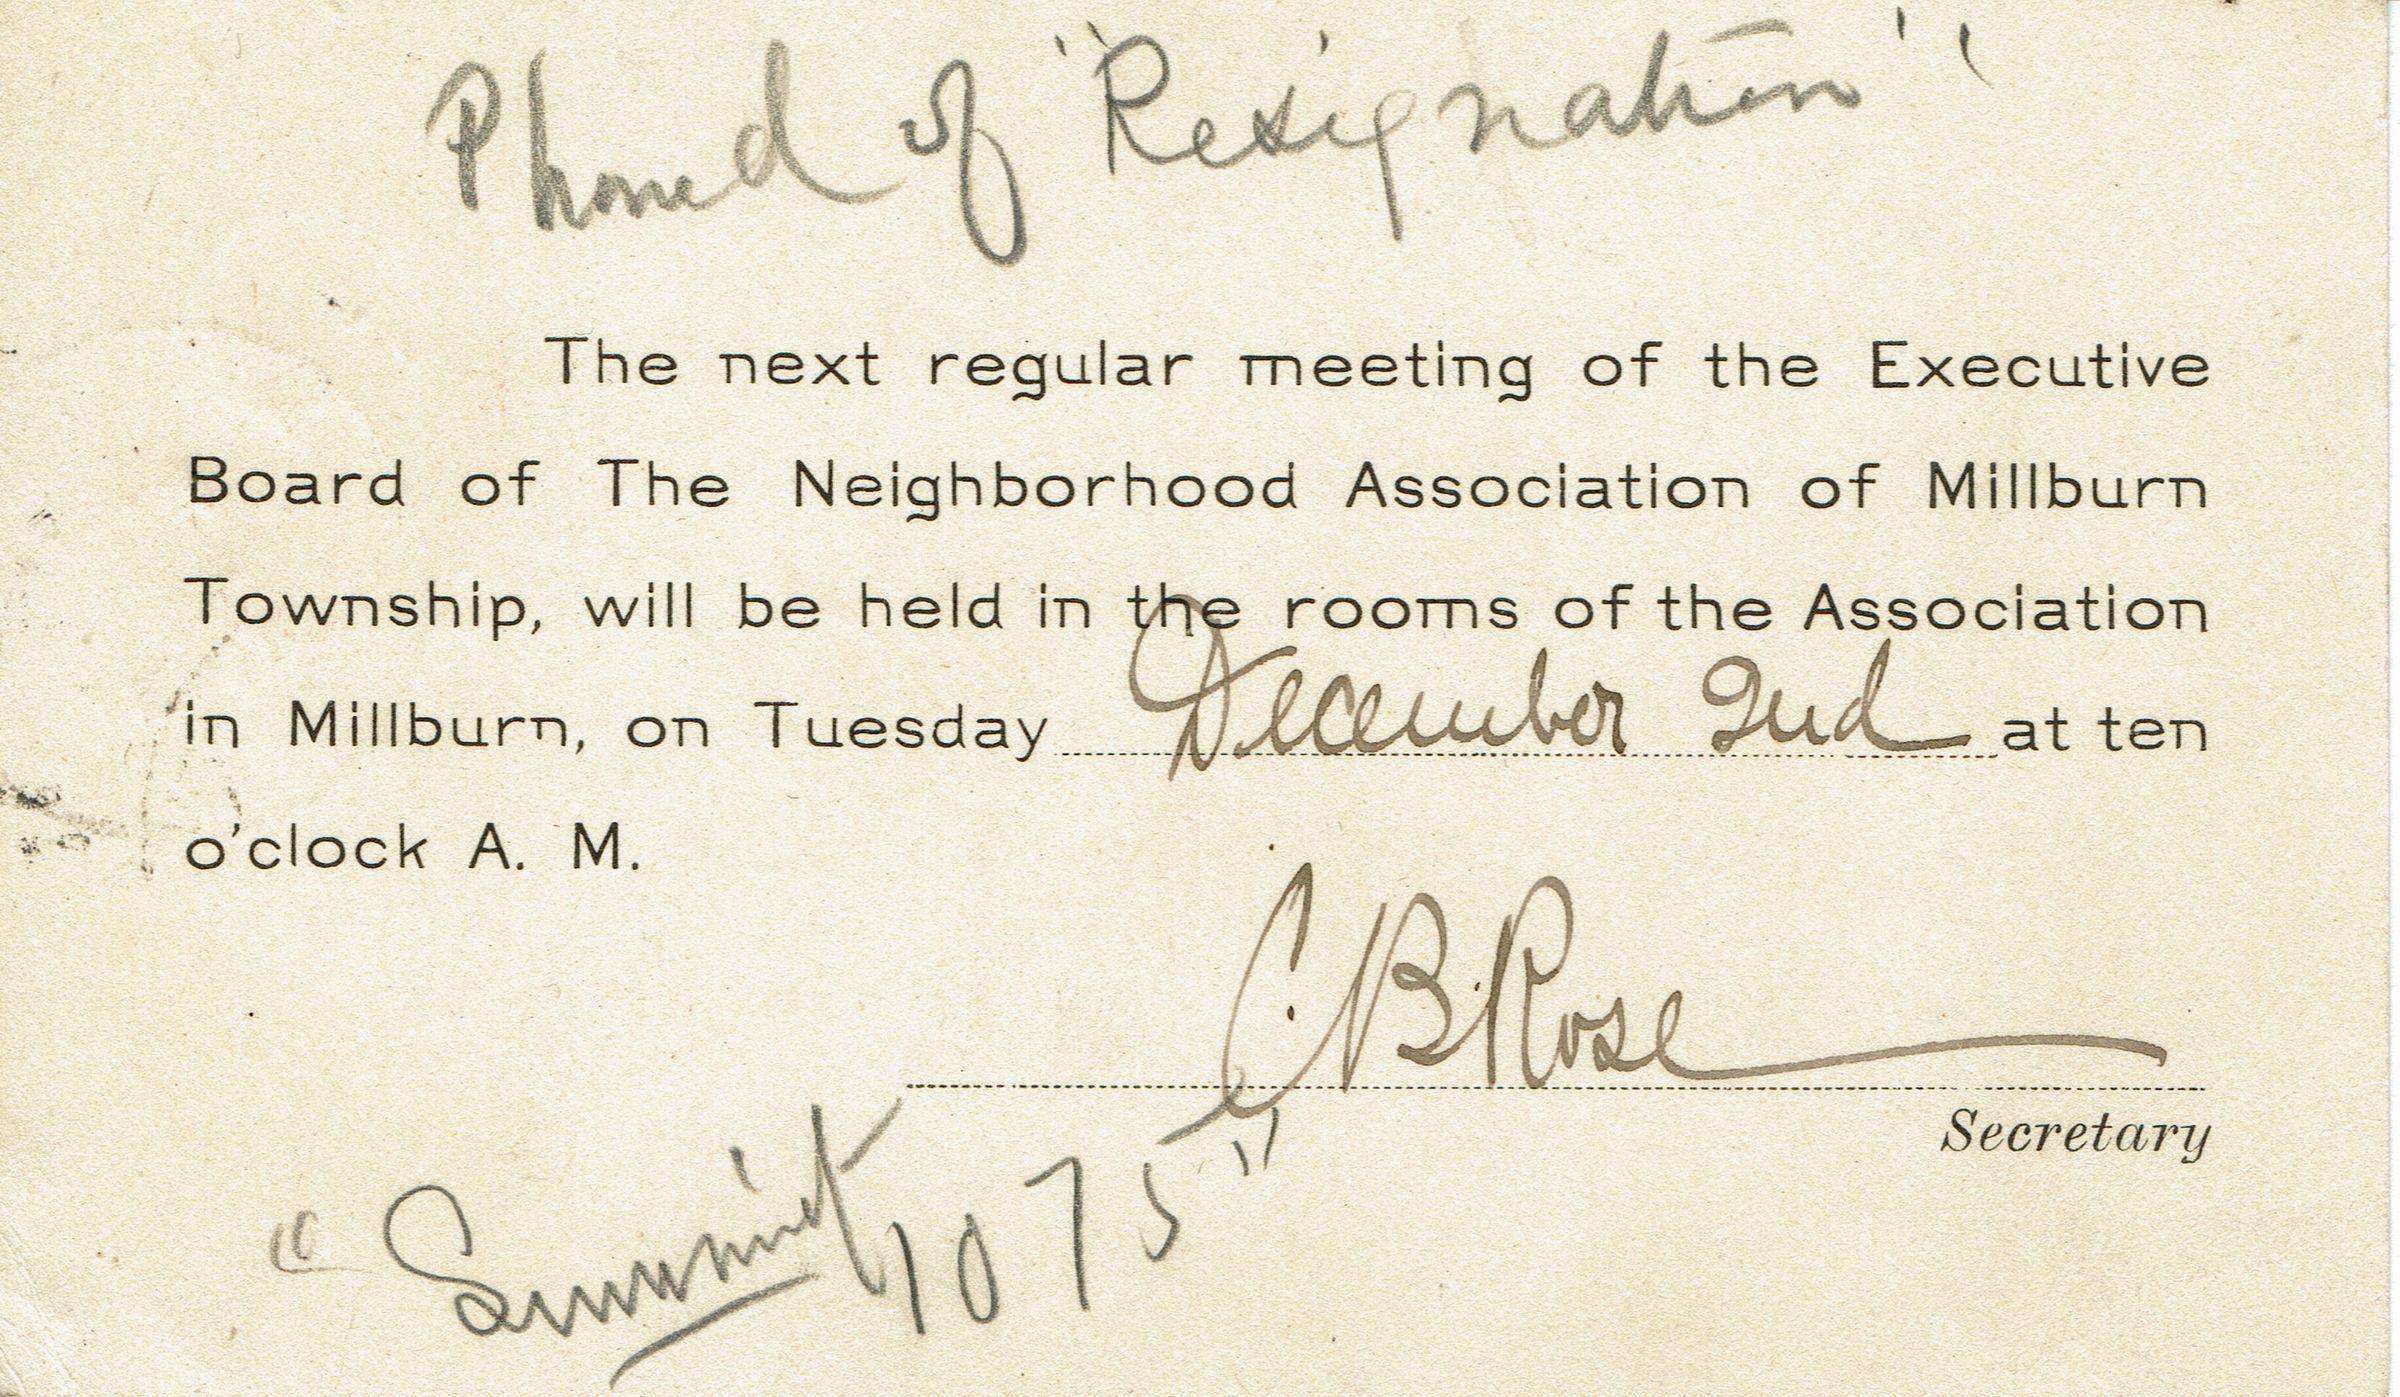 Phoned of "Resignation"
The next regular meeting of the Executive
Board of The Neighborhood Association of Millburn
Township, will be held in the rooms of the Association
in Millburn, on Tuesday December 2nd at ten
o'clock A. M.
C. B. Rose
Secretary
"Summit 1075"